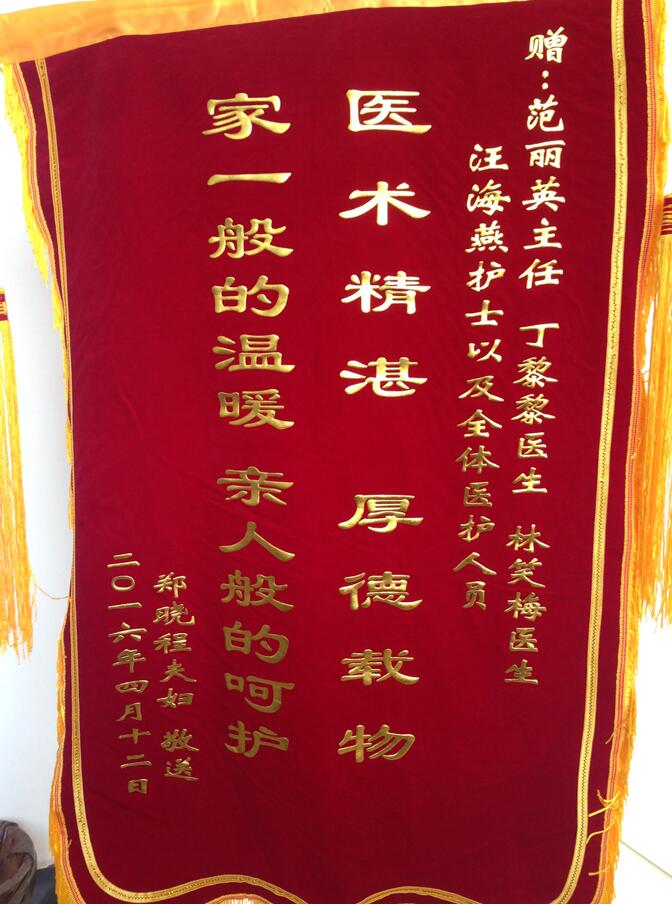 赠：范丽英主任 丁黎黎医生 林笑梅医生
汪海燕护士以及全体医护人员
医术精湛 厚德载物
家一般的温暖 亲人般的呵护
郑晓程夫妇 敬送
二〇一六年四月十二日